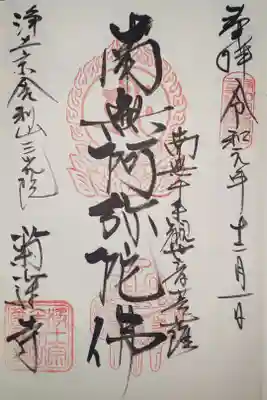 奉拝 令和元年十二月一日
南無千手観世音菩薩
南無阿弥陀佛
浄土宗舎利山三光院
蓮寺